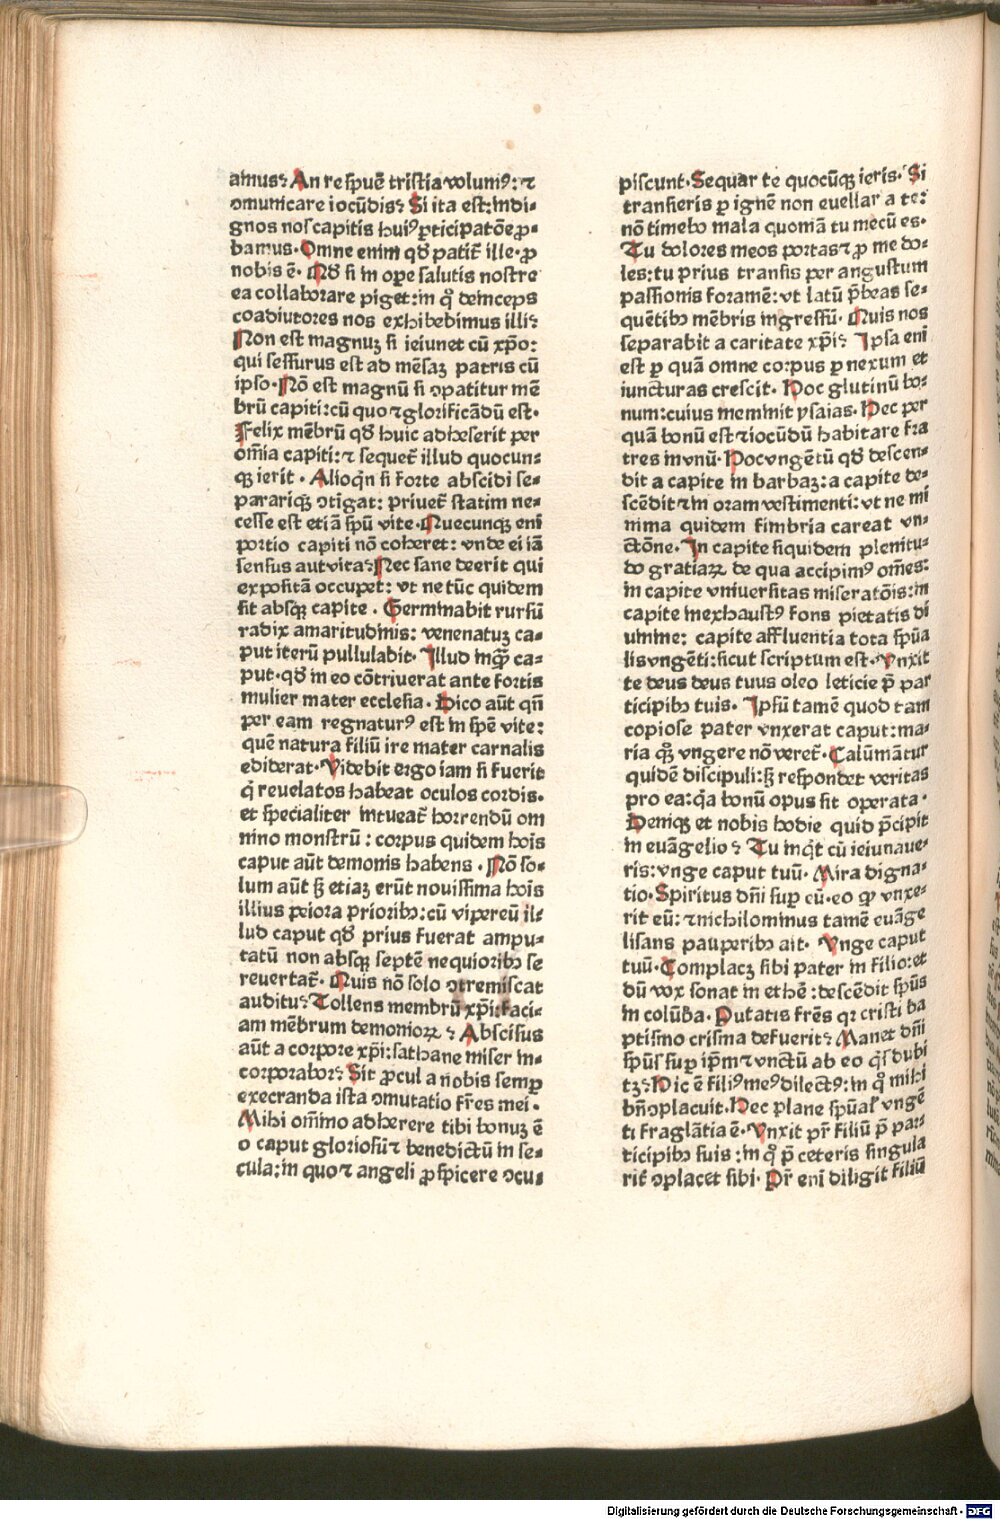 amus? An respuẽ tristia volumꝰ: ⁊
omunicare iocũdis? Si ita est: indi-
gnos nos capitis huiꝰ ꝑticipatõe ꝓ-
bamus. Omne enim qđ patit̃ ille. ꝓ
nobis ẽ. Nõ si in ope salutis nostre
ea collaborare piget: in q̊ deinceps
coadiutores nos exhibebimus illi?
Non est magnuꝫ si ieiunet cũ xp̃o:
qui sessurus est ad mẽsaꝫ patris cũ
ipso. Nõ est magnũ si ꝯpatitur mẽ
brũ capiti: cũ quo ⁊ glorificãdũ est.
Felix mẽbrũ qđ huic adheserit per
om̃ia capiti: ⁊ sequet̃ illud quocun-
qꝫ ierit. Alioq̃n si forte abscidi se-
parariqꝫ ꝯtigat: priuet̃ statim ne-
cesse est etiã sp̃u vite. Quecunqꝫ eni
portio capiti nõ coheret: vnde ei iã
sensus aut vita? Nec sane deerit qui
expositã occupet: vt ne tũc quidem
sit absqꝫ capite. Germinabit rursũ
radix amaritudinis: venenatuꝫ ca-
put iterũ pullulabit. Illud inqꝫ ca-
put. qđ in eo cõtriuerat ante fortis
mulier mater ecclesia. Dico aũt qñ
per eam regnaturꝰ est in spẽ vite:
quẽ natura filiũ ire mater carnalis
ediderat. Videbit ergo iam si fuerit
q̊ reuelatos habeat oculos cordis.
et specialiter intueat̃ horrendũ om
nino monstrũ: corpus quidem hoĩs
caput aũt demonis habens. Nõ so-
lum aũt sꝫ etiaꝫ erũt nouissima hoĩs
illius peiora prioribꝫ: cũ vipereũ il-
lud caput qđ prius fuerat ampu-
tatũ non absqꝫ septẽ nequioribꝫ se
reuertat̃. Quis nõ solo ꝯtremiscat
auditu? Tollens membrũ xp̃i: faci-
am mẽbrum demonioꝝ? Abscisus
aũt a corpore xp̃i: sathane miser in-
corporabor? Sit ꝓcul a nobis semꝑ
execranda ista ꝯmutatio fr̃es mei.
Mihi om̃imo adherere tibi bonuꝫ ẽ
o caput gloriosũ ⁊ benedictũ in se-
cula: in quo ⁊ angeli ꝓspicere ꝯcu-
piscunt. Sequar te quocũqꝫ ieris. Si
transieris ꝑ ignẽ non euellar a te:
nõ timebo mala quoniã tu mecũ es.
Tu dolores meos portas ⁊ ꝓ me do-
les: tu prius transis per angustum
passionis foramẽ: vt latũ p̃beas se-
quẽtibꝫ mẽbris ingressũ. Quis nos
separabit a caritate xp̃i? Ipsa eni
est ꝑ quã omne corpus ꝑ nexum et
iuncturas crescit. Hoc glutinũ bo-
num: cuius meminit ysaias. Hec per
quã bonũ est ⁊ iocũdũ habitare fra
tres in vnũ. Hoc vngẽtũ qđ descen-
dit a capite in barbaꝫ: a capite de-
scẽdit ⁊ in oram vestimenti: vt ne mi
nima quidem fimbria careat vn-
ctõne. In capite siquidem plenitu-
do gratiaꝝ de qua accipimꝰ om̃es:
in capite vniuersitas miseratõis: in
capite inexhaustꝰ fons pietatis di
uine: capite affluentia tota sp̃ua
lis vngẽti: sicut scriptum est. Vnxit
te deus deus tuus oleo leticie p̃ par
ticipibꝫ tuis. Ipsũ tamẽ quod tam
copiose pater vnxerat caput: ma-
ria qꝫ vngere nõ veret̃. Calũmãtur
quidẽ discipuli: sꝫ respondet veritas
pro ea: q̃a bonũ opus sit operata.
Deniqꝫ et nobis hodie quid p̃cipit
in euãgelio? Tu inq̃t cũ ieiunaue-
ris: vnge caput tuũ. Mira digna-
tio. Spiritus dñi suꝑ eũ. eo ꝙ vnxe-
rit eũ: ⁊ nichilominus tamẽ euãge
lisans pauperibꝫ ait. Vnge caput
tuũ. Complacꝫ sibi pater in filio: et
dũ vox sonat in ethẽ: descẽdit sp̃us
in colũba. Putatis fr̃es qꝛ cristi ba
ptismo crisma defuerit? Manet dñi
sp̃us suꝑ ip̃m ⁊ vnctũ ab eo q̊s dubi
tꝫ? Hic ẽ filiꝰ meꝰ dilectꝰ: in q̊ mihi
bñ ꝯplacuit. Hec plane sp̃ual̃ vngẽ
ti fraglãtia ẽ. Vnxit pr̃ filiũ p̃ par-
ticipibꝫ suis: in q̊ p̃ ceteris singula
rit̃ ꝯplacet sibi. Pr̃ eni diligit filiũ
Digitalisierung gefördert durch die Deutsche Forschungsgemeinschaft - DFG